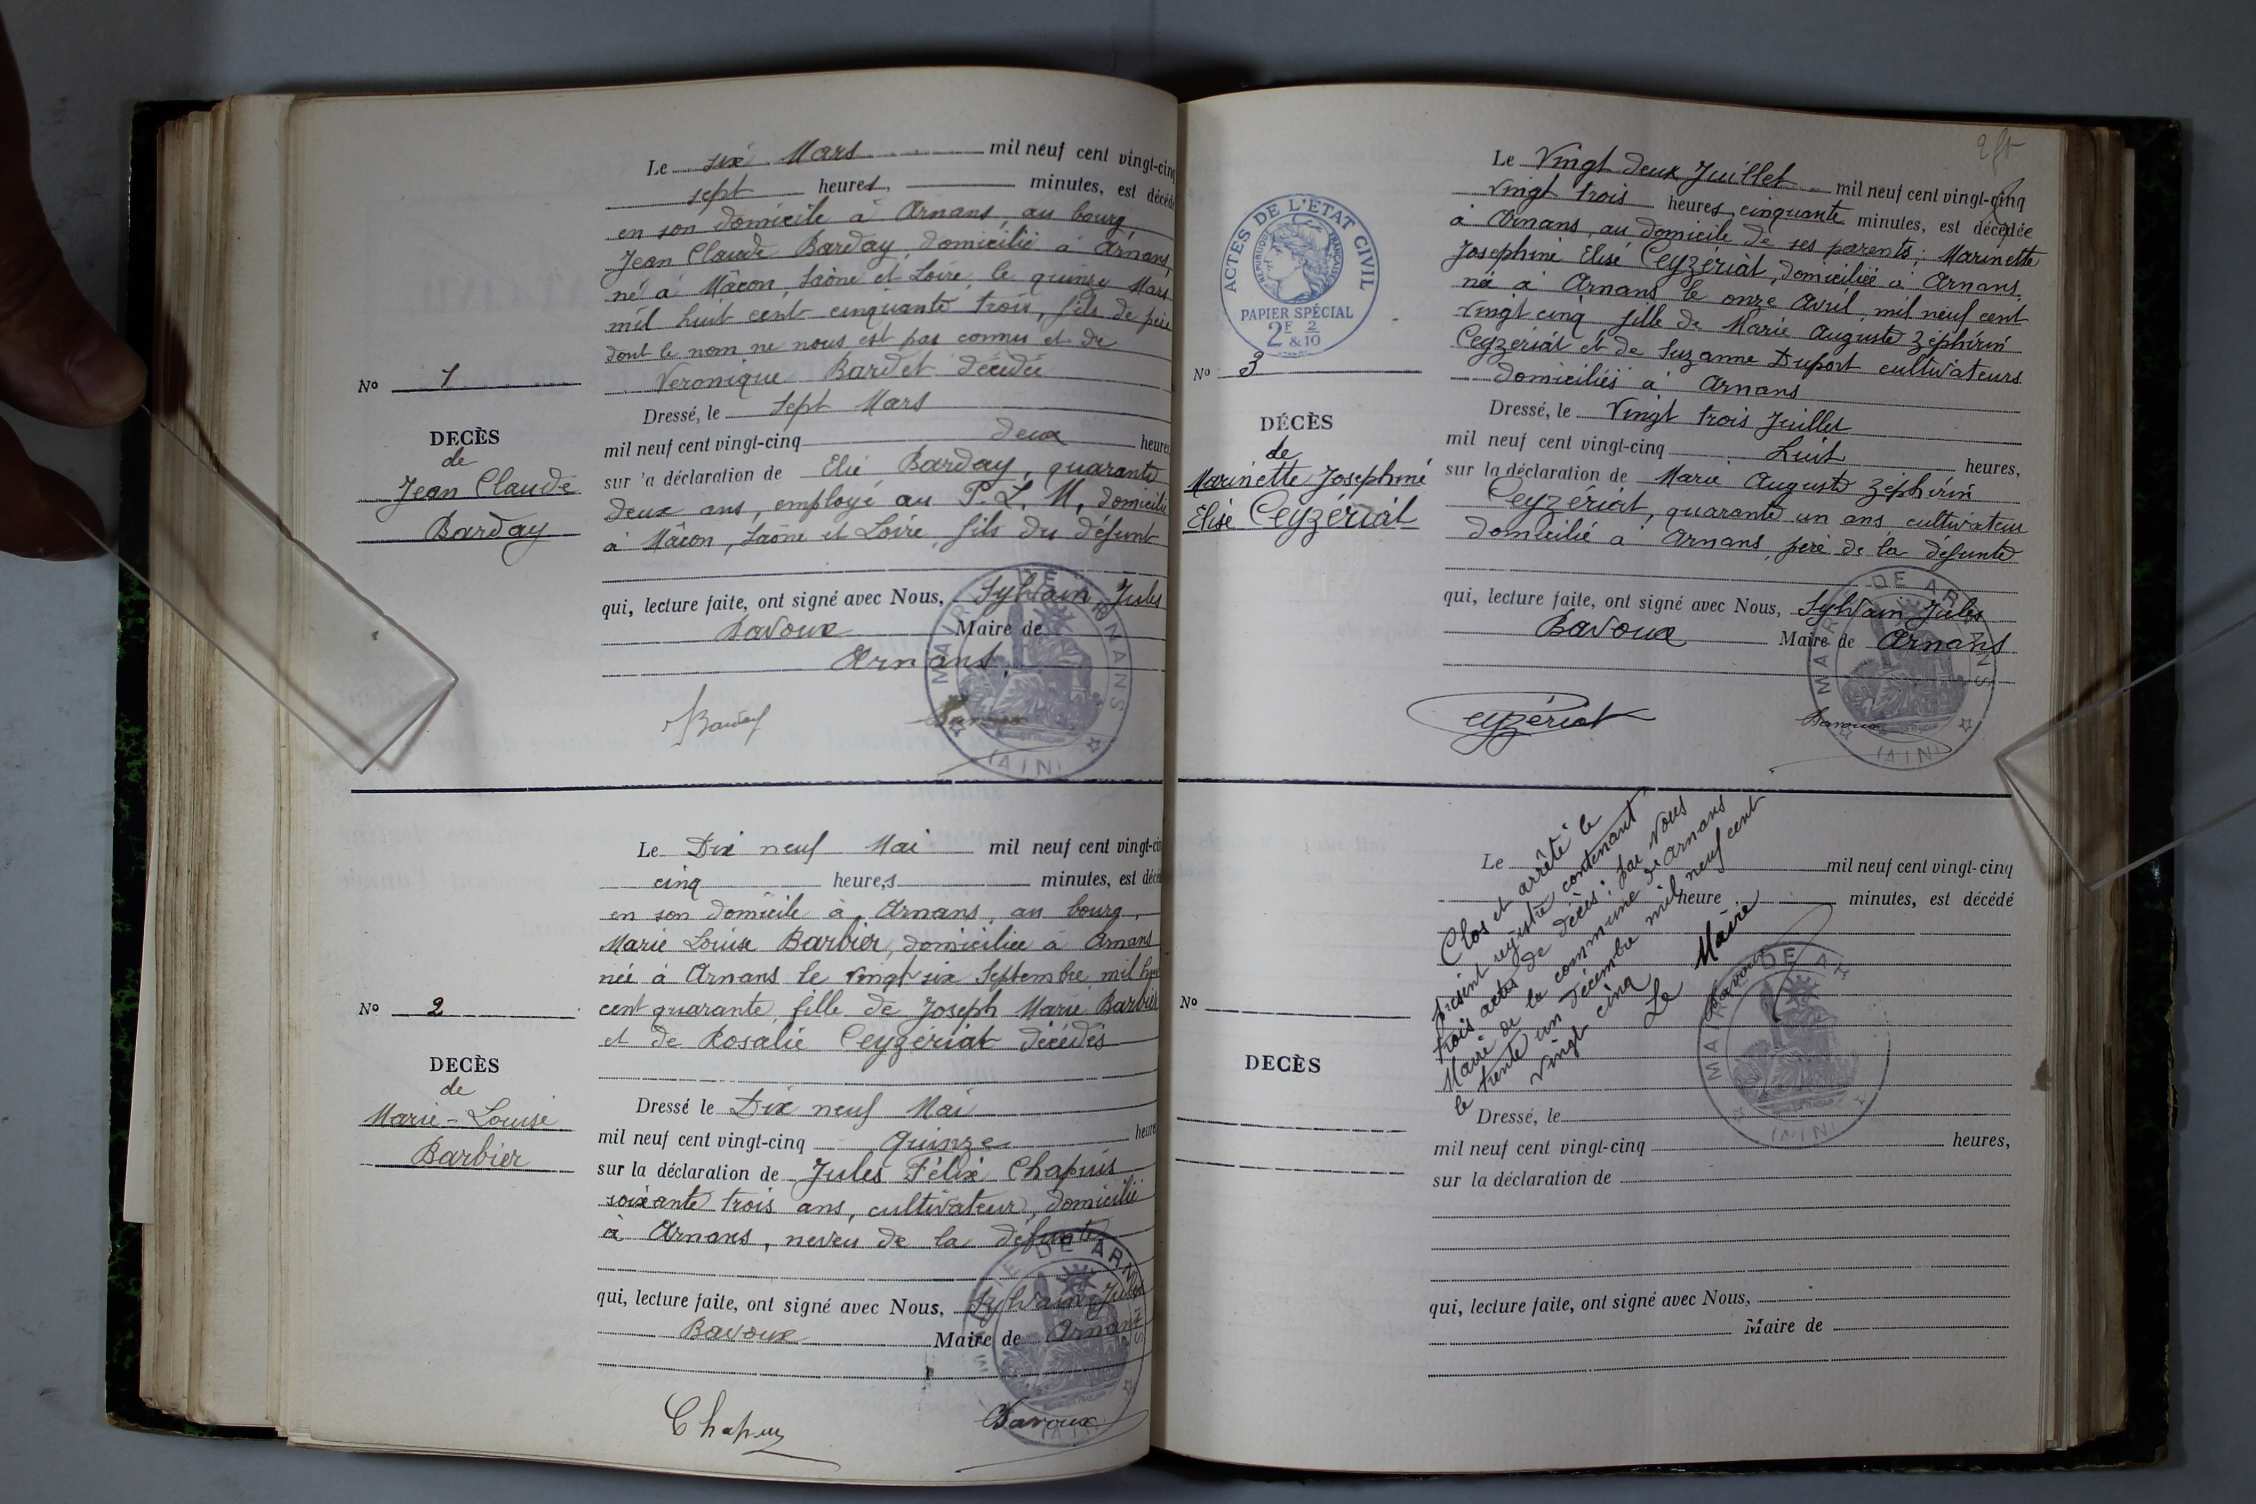 Le six Mars mil neuf cent vingt-cinq
sept heures, minutes, est décédé
en son domicile à Arnans, au bourg,
Jean Claude Barday, domicilié à Arnans,
né à Mâcon, Saône et Loire, le quinze Mars
mil huit cent cinquante trois, fils de père
dont le nom ne nous est pas connu et de
Veronique Bardet décédée
No 1
DECÈS
de
Jean Claude
Barday
Dressé, le sept Mars
mil neuf cent vingt-cinq deux heures
sur la déclaration de Elié Barday, quarante
deux ans, employé au P. L. M, domicilié
à Mâcon, Saône et Loire, fils du défunt
qui, lecture faite, ont signé avec Nous, Sylvain Jules
Bavoux Maire de
Arnans
Barday Bavoux
MAIRIE DE ARNANS
(AIN)
Le Dix neuf Mai mil neuf cent vingt-cinq
cinq heure,s minutes, est décé
en son domicile à Arnans, au bourg,
Marie Louise Barbier, domiciliée à Arnans
née à Arnans le vingt six Septembre mil huit
cent quarante, fille de Joseph Marie Barbier
et de Rosalie Ceyzériat décédés
No 2
DECÈS
de
Marie-Louise
Barbier
Dressé le Dix neuf Mai
mil neuf cent vingt-cinq quinze heures
sur la déclaration de Jules Félix Chapuis
soixante trois ans, cultivateur, domicilié
à Arnans, neveu de la défunte
qui, lecture faite, ont signé avec Nous, Sylvain Jules
Bavoux Maire de Arnans
Chapuis Bavoux
MAIRIE DE ARNANS
(AIN)
ACTES DE L'ETAT CIVIL
REPUBLIQUE FRANÇAISE
PAPIER SPÉCIAL
2F 2
&10
Le Vingt deux Juillet mil neuf cent vingt-cinq
vingt trois heures, cinquante minutes, est décédée
à Arnans, au domicile de ses parents, Marinette
Josephine Elisé Ceyzériat, domiciliée à Arnans,
née à Arnans le onze Avril, mil neuf cent
vingt cinq fille de Marie Auguste Zéphirin
Ceyzériat et de Suzanne Duport cultivateurs
domiciliés à Arnans
No 3
DÉCÈS
de
Marinette Josephine
Elisé Ceyzériat
Dressé, le Vingt trois Juillet
mil neuf cent vingt-cinq huit heures,
sur la déclaration de Marie Auguste Zéphirin
Ceyzériat, quarante un ans cultivateur
domicilié à Arnans, père de la défunte
qui, lecture faite, ont signé avec Nous, Sylvain Jules
Bavoux Maire de Arnans
Ceyzériat Bavoux
MAIRIE DE ARNANS
(AIN)
Le mil neuf cent vingt-cinq
heure minutes, est décédé
Clos et arrêté le
présent registre contenant
trois actes de décès, par Nous
Maire de la commune de Arnans
le trente un Décembre mil neuf cent
vingt cinq
Le Maire
Bavoux
MAIRIE DE AR
(AIN)
No
DECÈS
Dressé, le
mil neuf cent vingt-cinq heures,
sur la déclaration de
qui, lecture faite, ont signé avec Nous,
Maire de